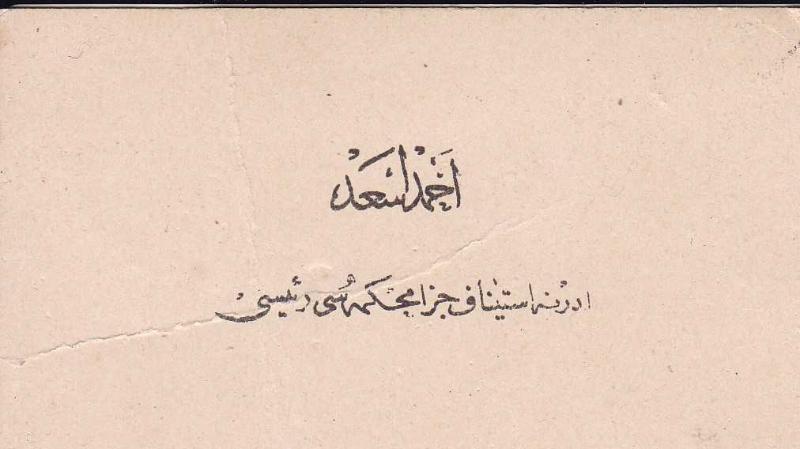 احمد اسعد
ادرنه استیناف جزا محكمه سی رئیسی